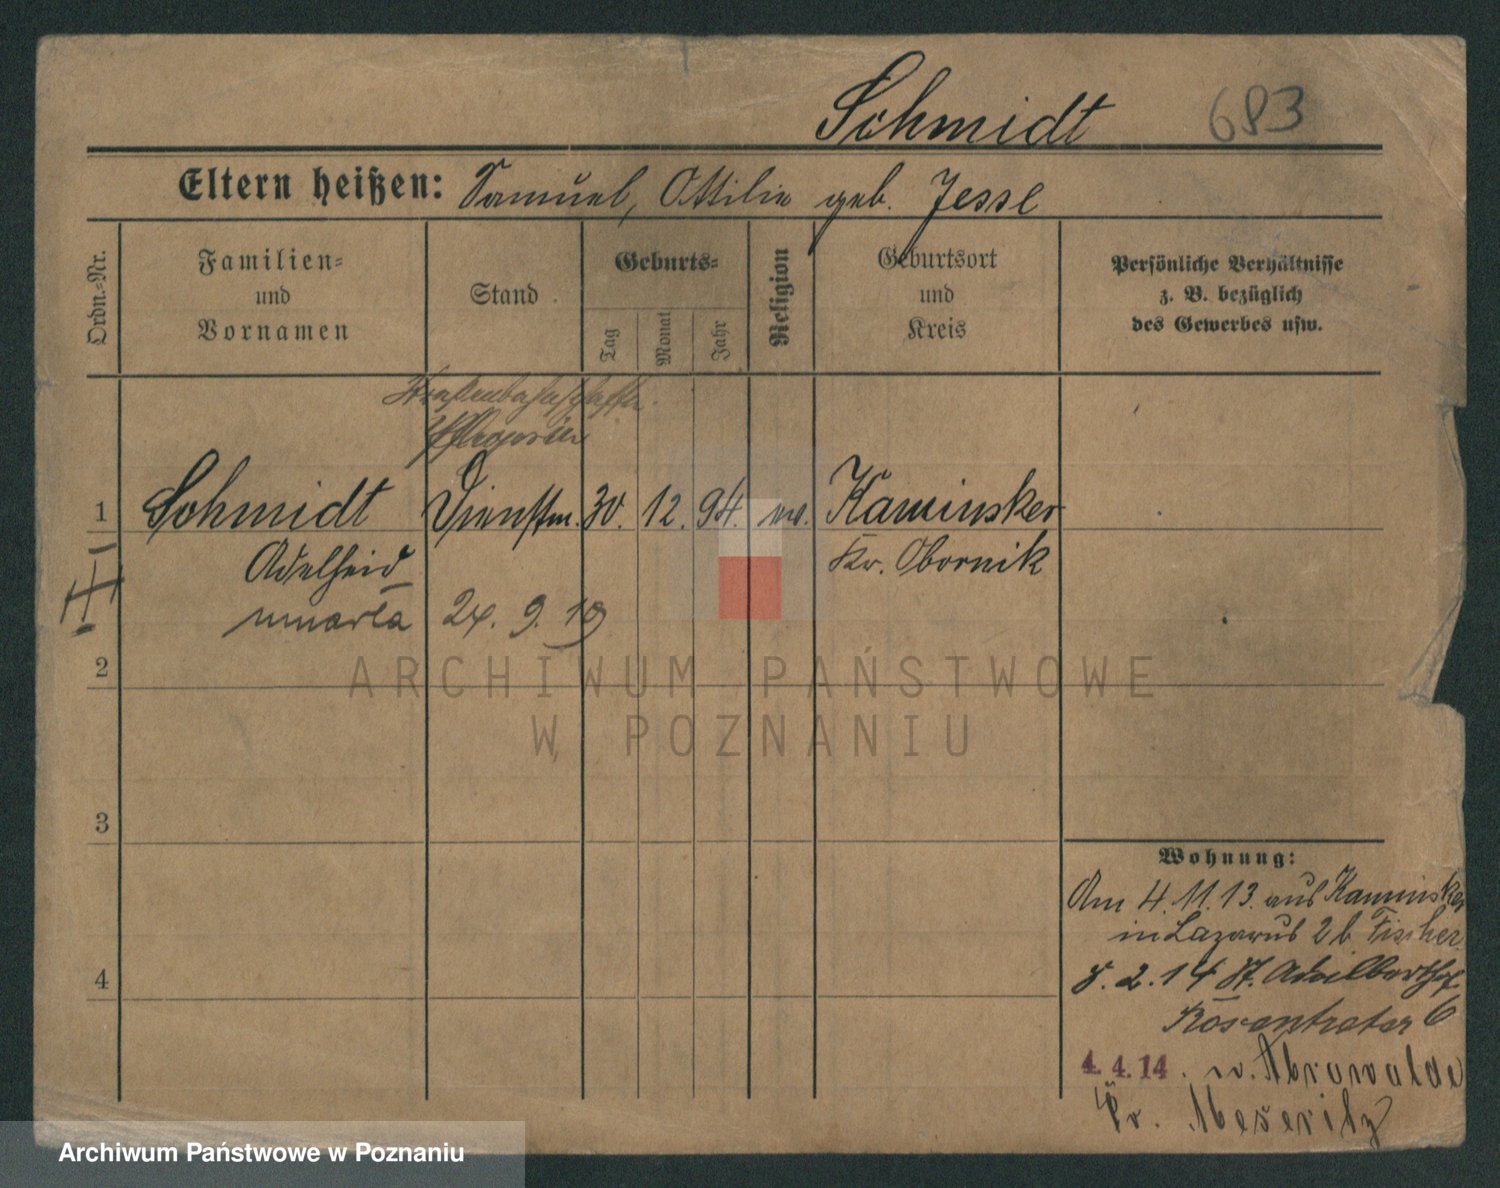 Schmidt 683
Eltern heißen: Samuel, Ottilie geb. Jesse
Ordn.-Nr.
Familien-
und
Vornamen
Stand
Geburts-
Tag
Monat
Jahr
Religion
Geburtsort
und
Kreis
Persönliche Verhältnisse
z. B. bezüglich
des Gewerbes usw.
1 Schmidt Dienstm. 30. 12. 94. ev. Kaminsker
Adelheid Kr. Obornik
umarła 24. 9. 19
2
3
4
Wohnung:
Am 4.11.13. aus Kaminsker
in Lazarus 2 b. Fischer
8.2.14 St. Adalbertstr
Rosentreter 6
4. 4. 14. n.
Kr. Meseritz
ARCHIWUM PAŃSTWOWE
W POZNANIU
Archiwum Państwowe w Poznaniu